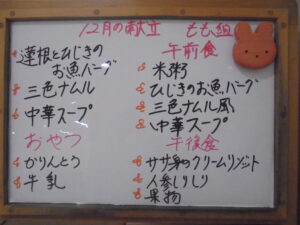 12月の献立 もも組
蓮根とひじきの
お魚バーグ
三色ナムル
中華スープ
おやつ
かりんとう
牛乳
午前食
米粥
ひじきのお魚バーグ
三色ナムル風
中華スープ
午後食
ササ身のクリームリゾット
人参しりしり
果物